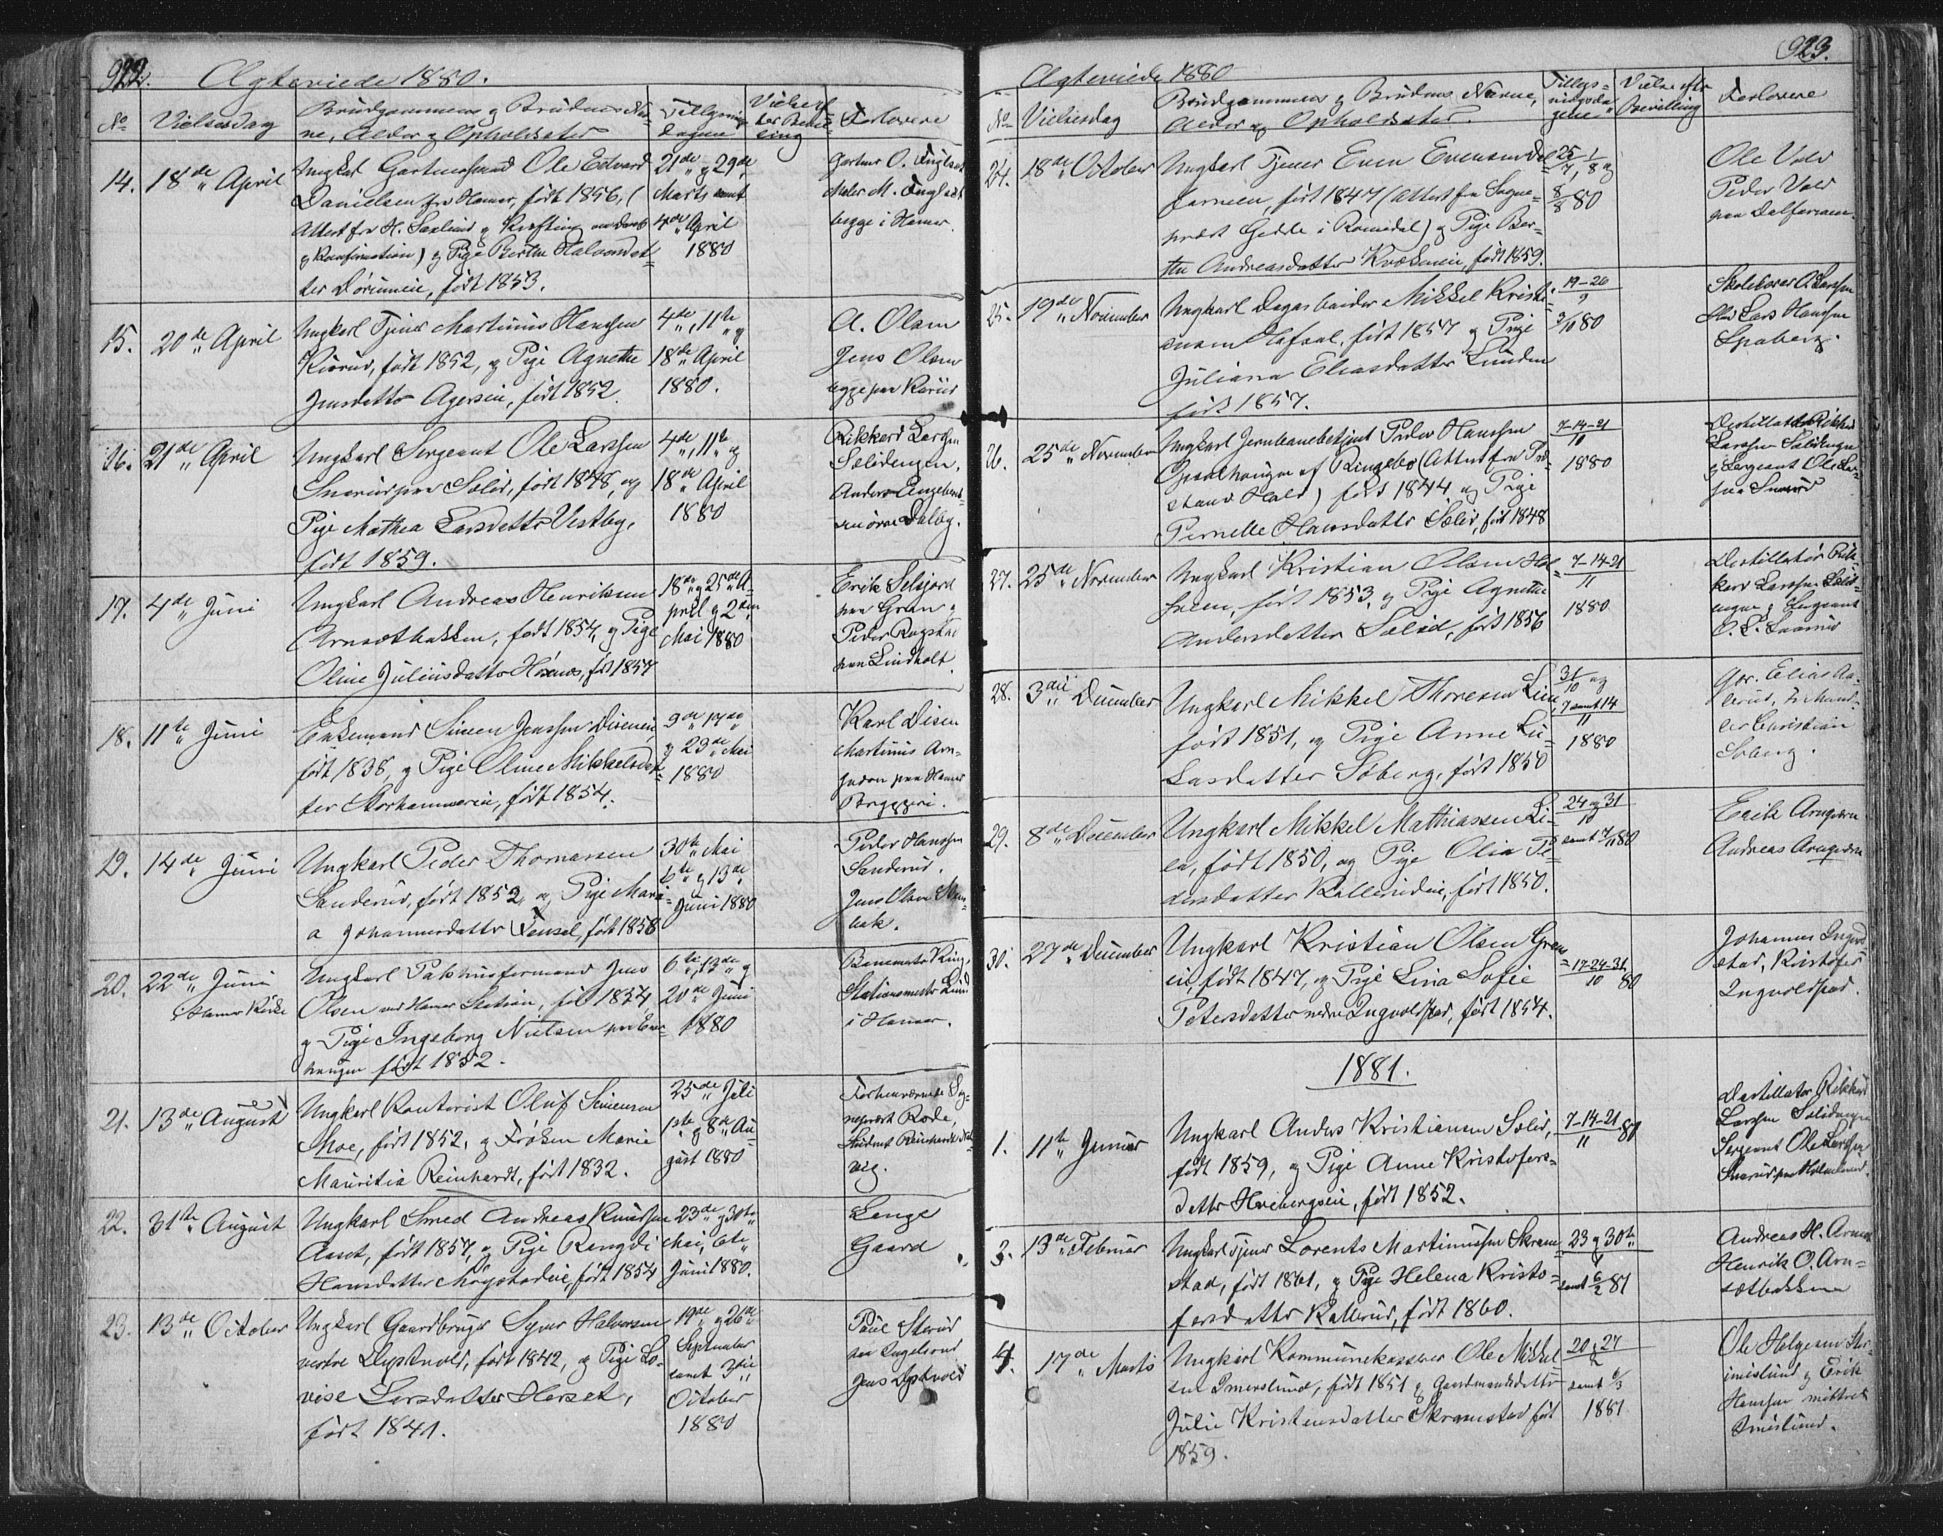 922.
Ægteviede 1880.
No Vielsesdag Brudgommens og Brudens Nav-
ne, Alder og Opholdssted Tillysnings
Dagene Forlovere
14. 18de April Ungkarl Gartnersvend Ole Edvard
Danielsen fra Hamar, født 1856, (
Attest fra H. Saxlund og om Daab
og Konfirmation) og Pige Berthe Halvorsdat-
ter født 1853.
21de og 29de
Marts samt
4de April
1880
Gartner O. Fuglset
Maler M. Fuglset
begge i Hamar.
15. 20de April Ungkarl Tjener Martinus Hanssen
Kiørud, født 1852, og Pige Agnethe
Jensdatter Agerseie, født 1852.
4de, 11te og
18de April
1880.
A. Olsen
Jens Olsen
begge paa
16. 21de April Ungkarl Sergeant Ole Larssen
Snarud paa Solid, født 1848, og
Pige Mathea Larsdatter Vestby,
født 1859.
4de, 11te og
18de April
1880
Rikkard Larssen
Solidengen.
Anders Engebret-
Dalby.
17. 4de Juni Ungkarl Andreas Henriksen
Arnsætbakken, født 1854, og Pige
Oline Juliusdatter født 1857
18de og 25de A-
pril og 2den
Mai 1880
Erik
paa Gran og
Peder
paa Lindholt.
18. 11te Juni Enkemand Simen Jenssen Diseneie,
født 1838, og Pige Oline Mikkelsdat-
ter Storhammereie, født 1854.
9de 17de
og 23de Mai
1880
Karl Disen
Martinus Arn-
paa Hamar
Bryggeri.
19. 14de Juni Ungkarl Peder Thomassen
Sanderud, født 1852, og Pige Mari-
a Johannesdatter født 1858
30te Mai
6te og 13de
Juni 1880
Peder Hanssen
Sanderud.
Jens Olsen
20. 22de Juni
i Hamar Kirke
Ungkarl Pakhusformand Jens
Olsen ved Hamar Station, født 1854
og Pige Ingeborg Nielsen paa
haugen født 1852.
6te, 13de og
20de Juni
1880
Banemester Ring,
Stationsmester Lund
i Hamar.
21. 13de August Ungkarl Kontorist Oluf Simensen
Moe, født 1852, og Frøken Marie
Mauritia Reinhardt, født 1832.
25de Juli
1ste og 8de Au-
gust 1880
Forhenværende Sog-
nepræst Rode,
Student Reinhardt
22. 31te August Ungkarl Smed Andreas Knudsen
Aant, født 1857, og Pige Rangdi
Hansdatter født 1854
23de og 30te
Mai, 6te
Juni 1880.
Lange
Gaard
23. 13de October Ungkarl Gaardbruger Syver Halvorsen
vestre Dystvold, født 1842, og Pige Lo-
vise Larsdatter Herset,
født 1841.
19de og 26de
September
samt 3die
October
1880
Paul
paa Ingelsrud
Jens Dystvold
923.
Ægteviede 1880
No Vielsesdag Brudgommens og Brudens Navne,
Alder og Opholdssted. Tillys-
ningsda-
gene Vielse efter
Bevilling Forlovere
24. 18de October Ungkarl Tjener Even Evensen Dal-
farmeie, født 1847 (Attest fra Sogne-
præst Gedde i Romedal) og Pige Ber-
the Andreasdatter Kvækeneie, født 1859.
25/7, 1/8 og
8/8 80
Ole Vold
Peder Vold
paa Dalfarmen.
25. 19de November Ungkarl Dagarbeider Mikkel Kristi-
ansen født 1857 og Pige
Juliana Eliasdatter Lunden
født 1857.
19-26
9
3/10 80
Skolelærer O. Larssen
Lars Hanssen
Spaberg.
26. 25de November Ungkarl Jernbanebetjent Peder Hanssen
af Ringebo (Attest fra
Hald) født 1844 og Pige
Pernelle Hansdatter Solid, født 1848
7-14-21
10
1880
Destillatør Rikkard
Larssen Solidengen
og Sergeant Ole Lar-
ssen Snarud
27. 25de November Ungkarl Kristian Olsen
født 1853, og Pige Agnethe
Andersdatter Solid, født 1856
7-14-21
11
1880
Destillatør Rik-
kard Larssen Solid-
engen og Sergeant
O. L. Snarud
28. 3die December Ungkarl Mikkel Thoresen
født 1851, og Pige Anne Lu-
casdatter Soberg, født 1850
31/10 og
7 samt 14
11
1880
Elias
Christian
Soberg.
29. 8de December Ungkarl Mikkel Mathiassen Li-
en, født 1850, og Pige Olia Pe-
dersdatter Kallerudeie, født 1850.
24 og 31
10
samt 7/11 80
Erik
Andreas
30. 27de December Ungkarl Kristian Olsen Gran-
eie, født 1847, og Pige Lina Sofie
Petersdatter nedre Ingvoldstad, født 1854.
17-24-31
10 80
Johannes Ingvold-
stad, Kristofer
Ingvoldstad.
1881.
1. 11te Januar Ungkarl Anders Kristiansen Solid,
født 1859, og Pige Anne Kristofers-
datter Hvebergseie, født 1852.
7-14-21
11 80
Destillatør Rikkard
Larssen Solidengen
Sergeant Ole Larssen
Snarud paa
3. 13de Februar Ungkarl Tjener Lorents Martinussen Skram-
stad, født 1861, og Pige Helena Kristo-
fersdatter Kallerud, født 1860.
23 og 30te
1
samt 6/2 81
Andreas H.
Henrik O. Arn-
sætbakken
4. 17de Marts Ungkarl Kommunekasserer Ole Mikkel-
sen Imerslund, født 1851 og Gaardmandsdatter
Julie Kristensdatter Skramstad født
1859.
20 og 27
2
samt 6/3
1881
Ole Helgesen
Imerslund og Erik
Hanssen
Imerslund.